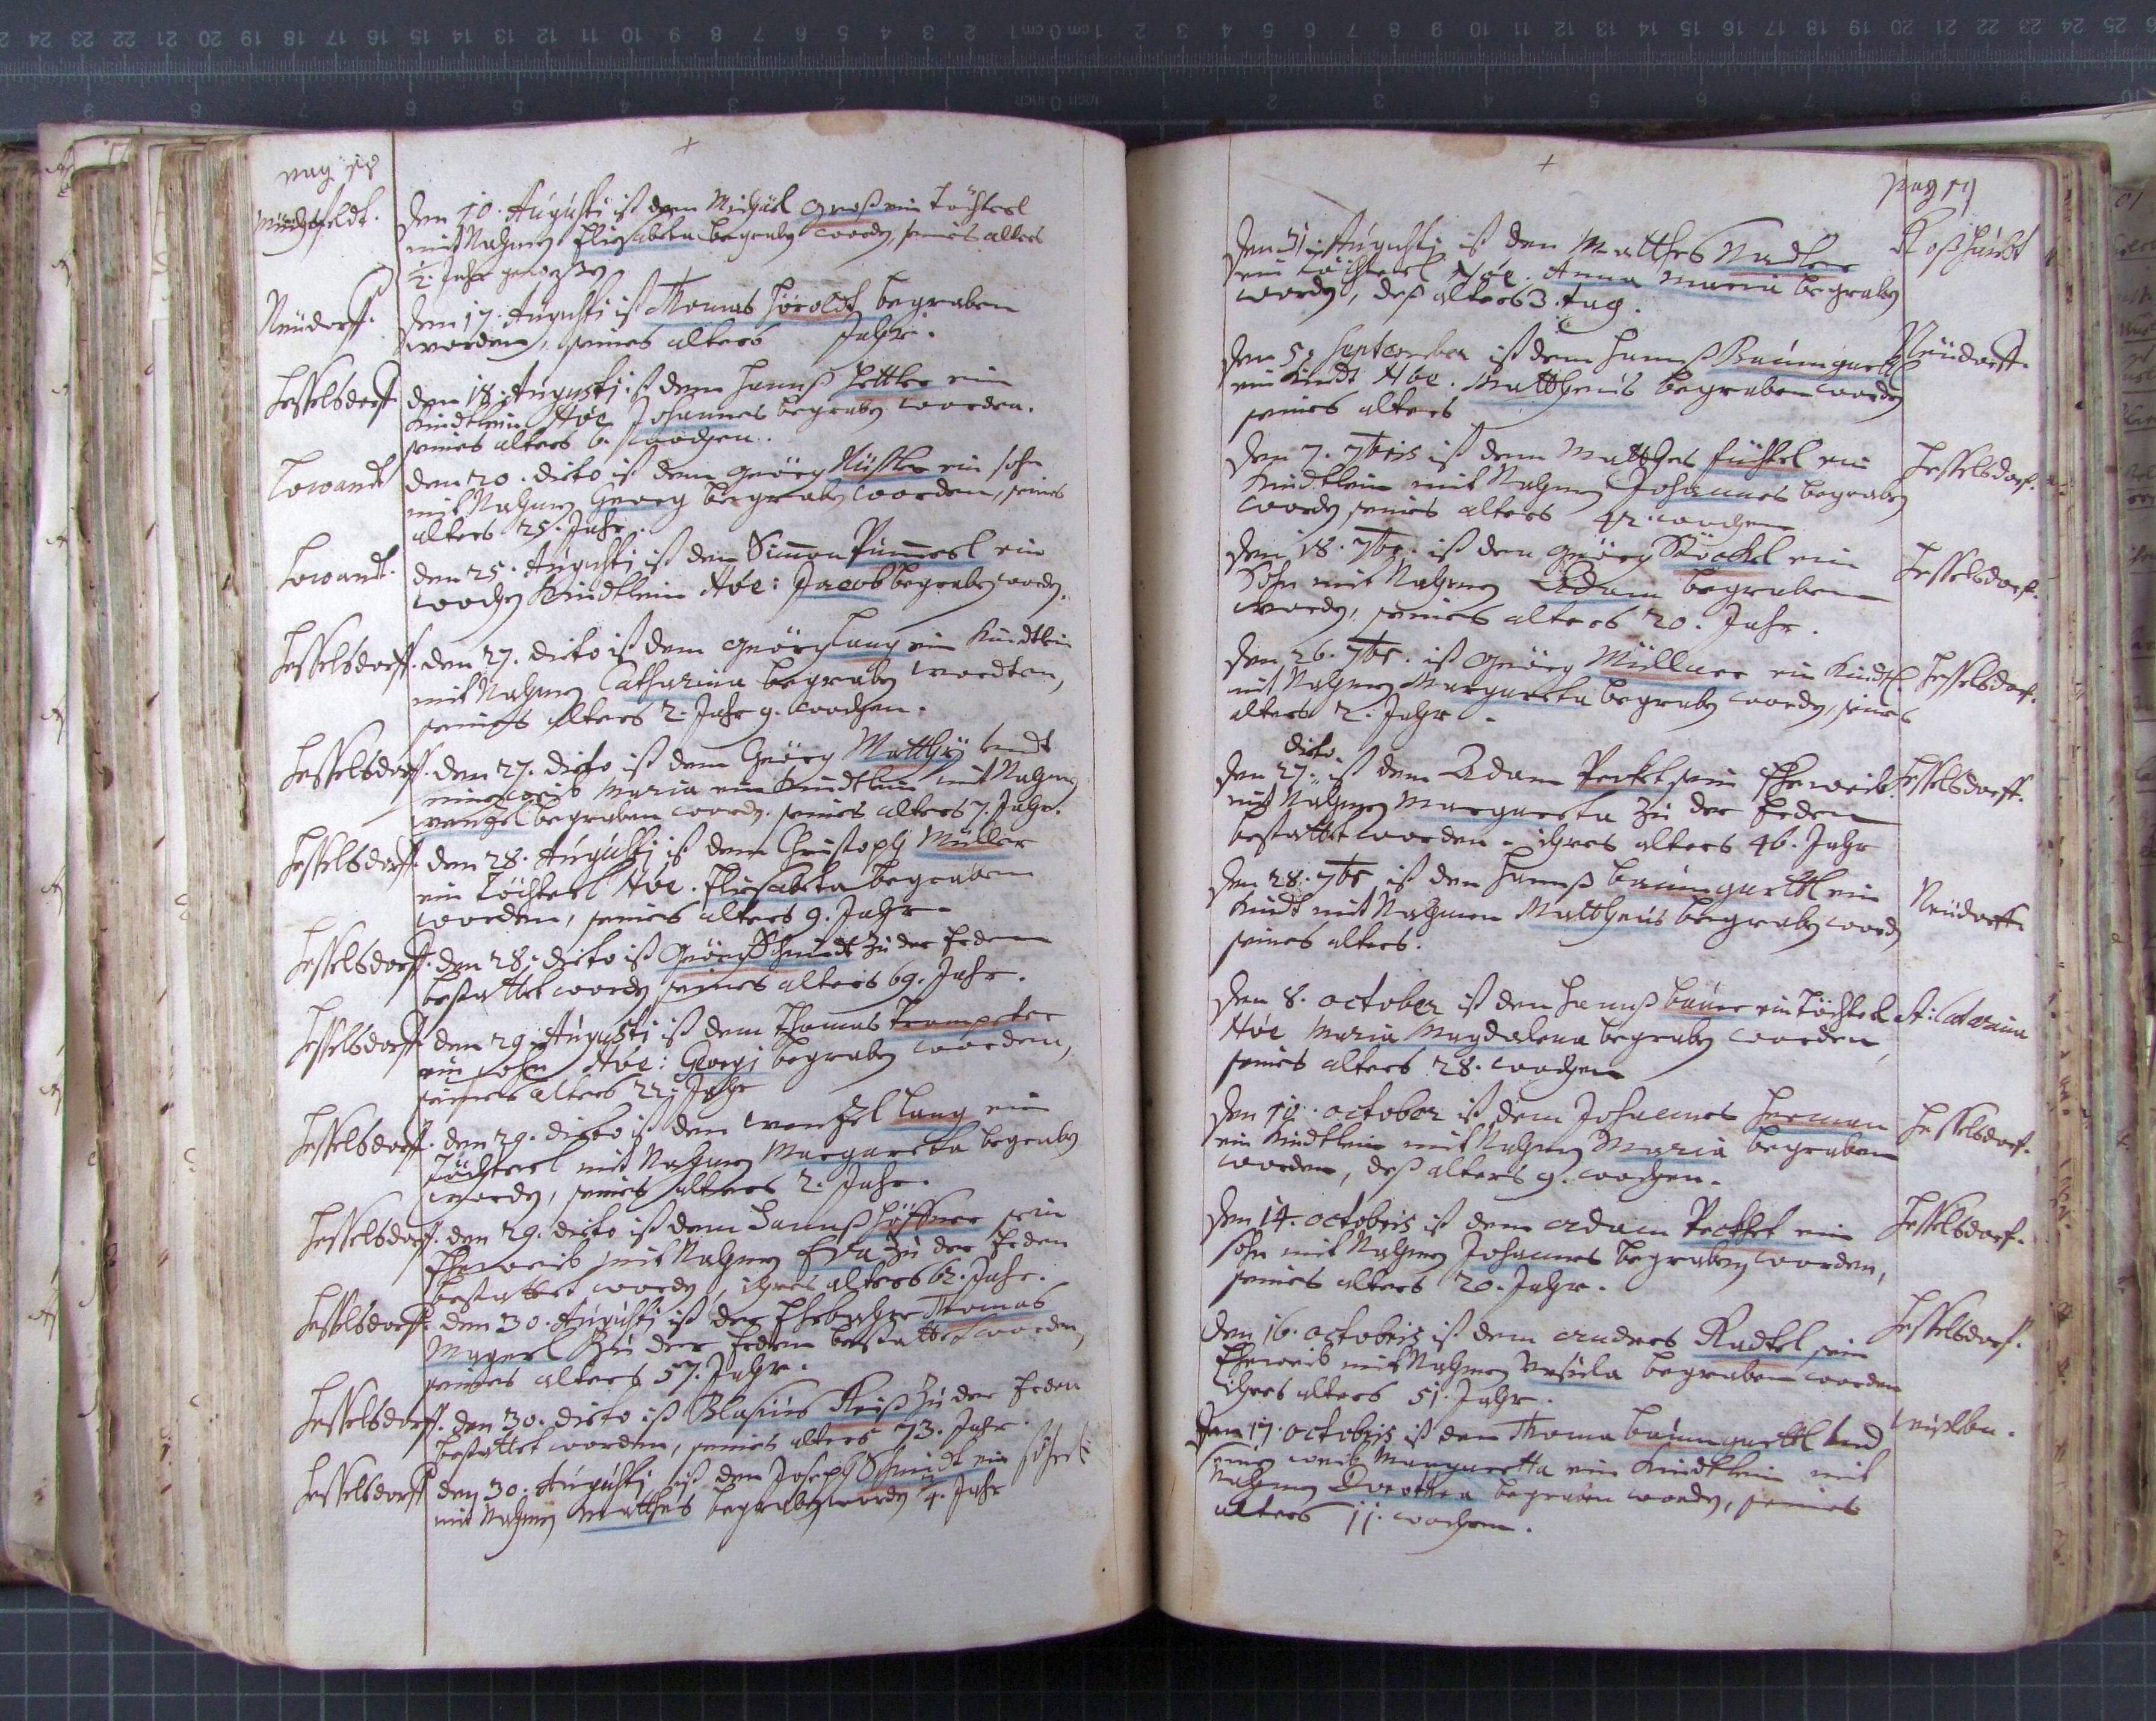 pag 18
Den 10. Augusti ist dem Michael Groß ein Töchterl
mit Nahmen Elisabeta begraben worden, seines alters
½ Jahr gewessen
Neüdorff.
Den 17. Augusti ist Thomas Höroldt begraben
worden, seines alters Jahr.
Hesselsdorff
den 18. Augusti ist dem Hannß ein
Kindtlein Noe Johannes begraben worden.
seines alters 6. wochen.
Lowandt
den 20. dito ist dem Geörg ein sohn
mit Nahmen Georg begraben worden, seines
alters 25. Jahr.
Lowandt.
den 25. Augusti ist dem Simon ein
wochen Kindtlein Noe: Jacob begraben worden.
Hesselsdorff.
den 27. dito ist dem Geörg Lang ein Kindtlein
mit Nahmen Catharina begraben wordten,
seines alters 2. Jahr 9. wochen.
Hesselsdorff.
den 27. dito ist dem Geörg Matthÿ undt
weib Maria ein Kindtlein mit Nahmen
Wenzel begraben worden. seines alters 7. Jahr.
Hesselsdorff.
den 28. Augusti ist dem Christoph Müller
ein Töchterl Noe. Elisabeta begraben
worden, seines alters 9. Jahr.
Hesselsdorff.
den 28. dito ist Geörg Schmidt zu der Erden
bestattet worden seines alters 69. Jahr.
Hesselsdorff.
den 29. Augusti ist dem Thomas Trompeter
ein sohn Noe: Georgi begraben worden,
seines alters 22. Jahr
Hesselsdorff.
den 29. dito ist dem Wenzel Lang ein
Töchterl mit Nahmen Margareta begraben
worden, seines alters 2. Jahr.
Hesselsdorff.
den 29. dito ist dem Hannß Höffner sein
Eheweib mit Nahmen Eva zu der Erden
bestattet worden, ihres alters 62. Jahr.
Hesselsdorff.
den 30. Augusti ist der Thomas
Magerl zu der Erden bestattet worden,
seines alters 57. Jahr.
Hesselsdorff.
den 30. dito ist Blasius Reiß zu der Erden
bestattet worden, seines alters 73. Jahr.
Hesselsdorff
den 30. Augusti ist dem Joseph Schmidt ein söherl
mit Nahmen Matthes begraben worden 4. Jahr
pag 19
Roßhaubt
Den 31. Augusti ist dem Matthes Nadler
ein Töchterl Noe. Anna Maria begraben
worden, deß alters 3. tag.
Neüdorff.
Den 5. September ist dem Hannß Baumgartl
ein Kindt Noe. Mattheus begraben worden
seines alters
Hesselsdorf.
Den 7. 7bris ist dem Matthes ein
Kindtlein mit Nahmen Johannes begraben
worden seines alters 42. wochen
Hesselsdorf.
Den 18. 7br. ist dem Geörg Stöckel ein
Sohn mit Nahmen Adam begraben
worden, seines alters 20. Jahr.
Hesselsdorf.
Den 26. 7br. ist Geörg Müllner ein Kindtl.
mit Nahmen Margareta begraben worden, seines
alters 2. Jahr.
Hesselsdorff.
dito
Den 27. ist dem Adam Peckel sein Eheweib
mit Nahmen Margareta zu der Erden
bestattet worden. ihres alters 46. Jahr
Neüdorff.
Den 28. 7br ist dem Hannß Baumgartl ein
Kindt mit Nahmen Mattheus begraben worden
seines alters.
St: Catarina
Den 8. october ist dem Hannß Bauer ein Töchterl
Noe Maria Magdalena begraben worden
seines alters 28. wochen
Hesselsdorf.
Den 10. october ist dem Johannes Herman
ein Kindtlein mit Nahmen Maria begraben
worden, deß alters 9. wochen.
Hesselsdorf.
Den 14. octobris ist dem Adam Peckhel ein
sohn mit Nahmen Johannes begraben worden,
seines alters 20. Jahr.
Hesselsdorf.
Den 16. octobris ist dem Andres Radtel sein
Eheweib mit Nahmen Ursula begraben worden
ihres alters 51. Jahr.
Den 17. octobris ist dem Thoma Baumgartl und
seinen weib Margaretta ein Kindtlein mit
Nahmen Dorothea begraben worden, seines
alters 11. wochen.